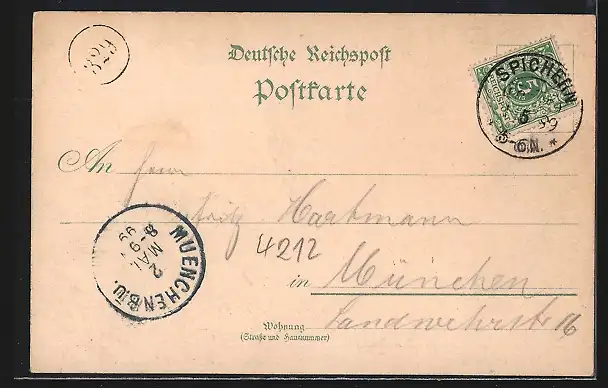 Deutsche Reichspost
Postkarte
SPICHERN
5-6N.
An Herrn
Fritz Hartmann
4212
in München
Landwehrstr 16
Wohnung
(Straße und Hausnummer)
MUENCHEN B.U.
2
MAI
8-9
99